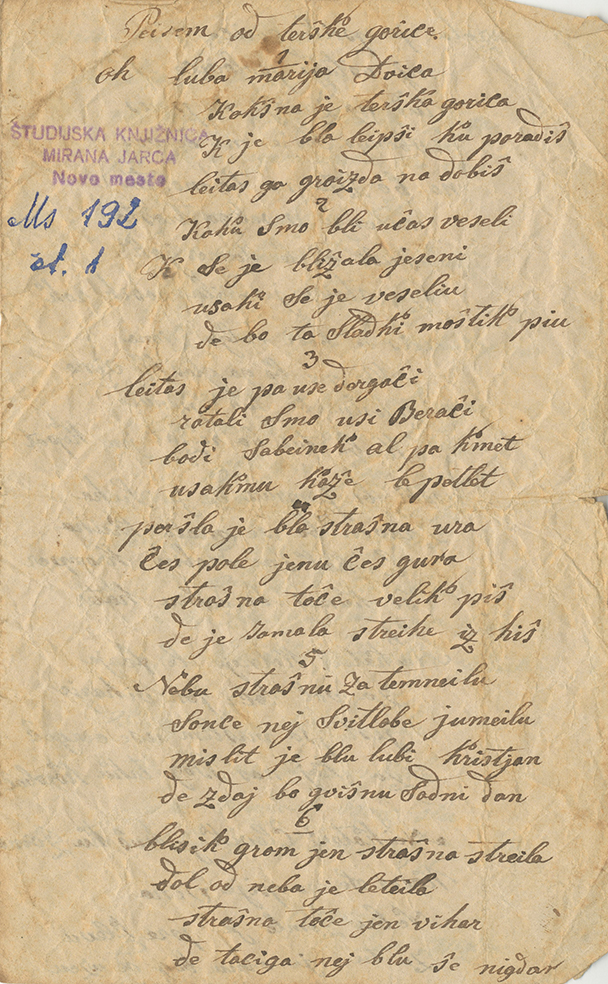 Peisem od terške gorice.
1
oh luba marija Dvica
Kakšna je terška gorica
K je bla leipši ku poradiš
leitas ga groizda na dobiš
2
Kaku smo bli učas veseli
K Se je bližala jeseni
usaki Se je veseliu
de bo ta Sladki moštik piu
3
leitas je pa use dergači
ratali Smo usi Berači
bodi Sabeinek al pa kmet
usakmu kaže le petlet
4
peršla je bla strašna ura
čes pole jenu čes gura
strašna toče velik piš
de je Jamala streihe iz hiš
5
Nebu strašnu Za temneilu
Sonce nej Svitlobe jumeilu
mislit je blu lubi kristjan
de zdaj bo gvišnu Sodni dan
6
blisik grom jen strašna streila
dol od neba je leteila
strašna toče jen vihar
de taciga nej blu še nigdar
ŠTUDIJSKA KNJIŽNICA
MIRANA JARCA
Novo mesto
Ms 192
št. 1